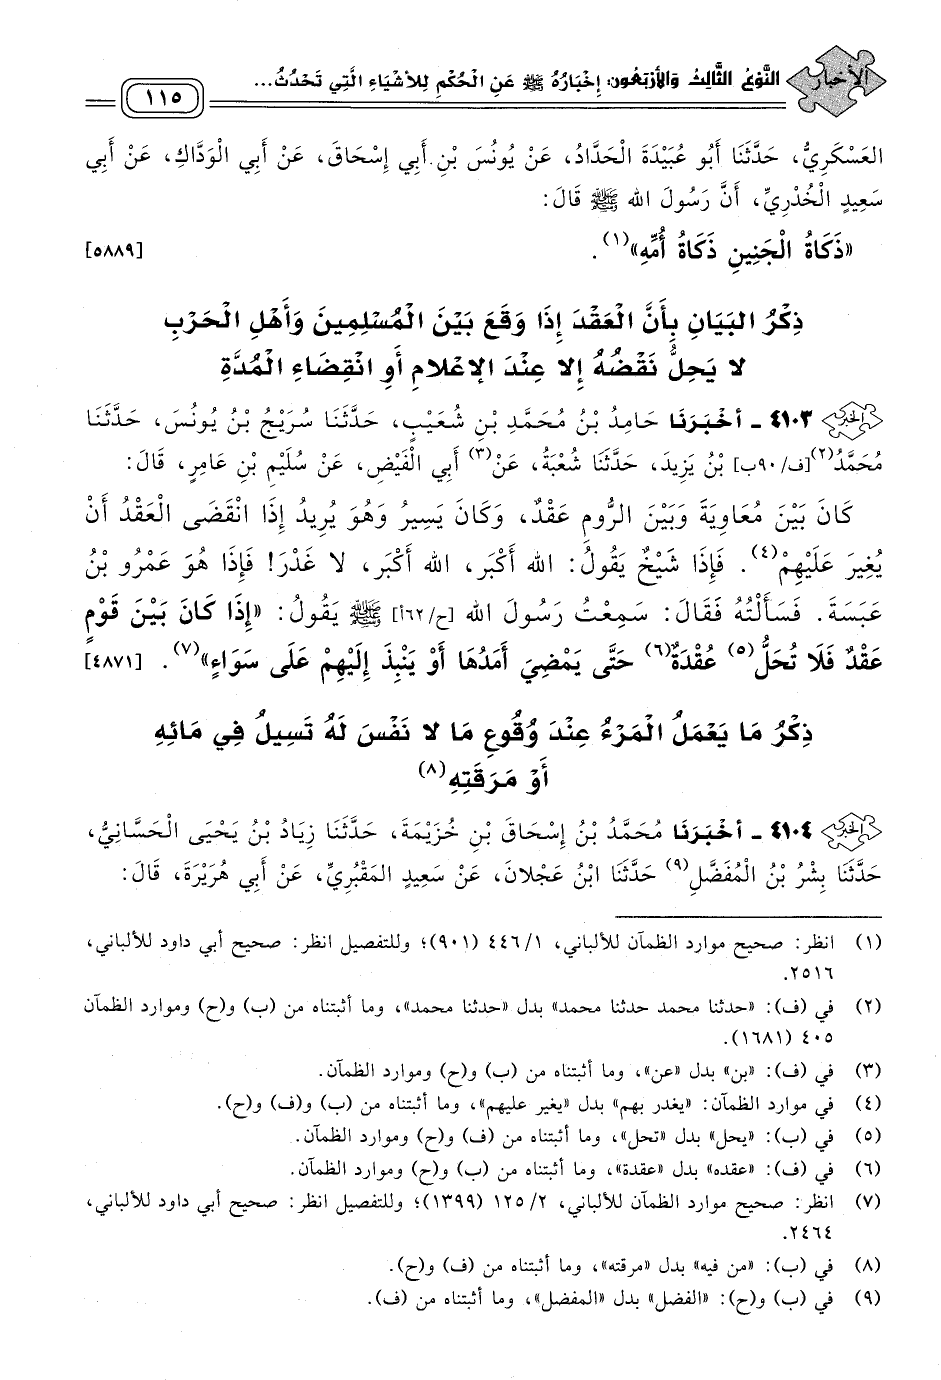 الأخبار
النَّوْعُ الثَّالِثُ وَالأَرْبَعُون: إِخْبَارُهُ ﷺ عَنِ الْحُكْمِ لِلأَشْيَاءِ الَّتِي تَحْدُثُ...
١١٥
العَسْكَرِيُّ، حَدَّثَنَا أَبُو عُبَيْدَةَ الْحَدَّادُ، عَنْ يُونُسَ بْنِ أَبِي إِسْحَاقَ، عَنْ أَبِي الْوَدَّاكِ، عَنْ أَبِي
سَعِيدٍ الْخُدْرِيِّ، أَنَّ رَسُولَ الله ﷺ قَالَ:
«ذَكَاةُ الْجَنِينِ ذَكَاةُ أُمِّهِ»(١). [٥٨٨٩]
ذِكْرُ البَيَانِ بِأَنَّ الْعَقْدَ إِذَا وَقَعَ بَيْنَ الْمُسْلِمِينَ وَأَهْلِ الْحَرْبِ
لا يَحِلُّ نَقْضُهُ إِلا عِنْدَ الإِعْلامِ أَوِ انْقِضَاءِ الْمُدَّةِ
٤١٠٣ - أخْبَرَنَا حَامِدُ بْنُ مُحَمَّدِ بْنِ شُعَيْبٍ، حَدَّثَنَا سُرَيْجُ بْنُ يُونُسَ، حَدَّثَنَا
مُحَمَّدُ(٢)[ف/٩٠ب] بْنُ يَزِيدَ، حَدَّثَنَا شُعْبَةُ، عَنْ(٣) أَبِي الْفَيْضِ، عَنْ سُلَيْمِ بْنِ عَامِرٍ، قَالَ:
كَانَ بَيْنَ مُعَاوِيَةَ وَبَيْنَ الرُّومِ عَقْدٌ، وَكَانَ يَسِيرُ وَهُوَ يُرِيدُ إِذَا انْقَضَى الْعَقْدُ أَنْ
يُغِيرَ عَلَيْهِمْ(٤). فَإِذَا شَيْخٌ يَقُولُ: الله أَكْبَر، الله أَكْبَر، لا غَدْرَ! فَإِذَا هُوَ عَمْرُو بْنُ
عَبَسَةَ. فَسَأَلْتُهُ فَقَالَ: سَمِعْتُ رَسُولَ الله [ح/٦٢أ] ﷺ يَقُولُ: «إِذَا كَانَ بَيْنَ قَوْمٍ
عَقْدٌ فَلَا تُحَلُّ(٥) عُقْدَةٌ(٦) حَتَّى يَمْضِيَ أَمَدُهَا أَوْ يَنْبِذَ إِلَيْهِمْ عَلَى سَوَاءٍ»(٧). [٤٨٧١]
ذِكْرُ مَا يَعْمَلُ الْمَرْءُ عِنْدَ وُقُوعِ مَا لا نَفْسَ لَهُ تَسِيلُ فِي مَائِهِ
أَوْ مَرَقَتِهِ(٨)
٤١٠٤ - أخْبَرَنَا مُحَمَّدُ بْنُ إِسْحَاقَ بْنِ خُزَيْمَةَ، حَدَّثَنَا زِيَادُ بْنُ يَحْيَى الْحَسَّانِيُّ،
حَدَّثَنَا بِشْرُ بْنُ الْمُفَضَّلِ(٩) حَدَّثَنَا ابْنُ عَجْلانَ، عَنْ سَعِيدٍ المَقْبُرِيِّ، عَنْ أَبِي هُرَيْرَةَ، قَالَ:
(١) انظر: صحيح موارد الظمآن للألباني، ١/ ٤٤٦ (٩٠١)؛ وللتفصيل انظر: صحيح أبي داود للألباني،
٢٥١٦.
(٢) في (ف): «حدثنا محمد حدثنا محمد» بدل «حدثنا محمد»، وما أثبتناه من (ب) و(ح) وموارد الظمآن
٤٠٥ (١٦٨١).
(٣) في (ف): «بن» بدل «عن»، وما أثبتناه من (ب) و(ح) وموارد الظمآن.
(٤) في موارد الظمآن: «يغدر بهم» بدل «يغير عليهم»، وما أثبتناه من (ب) و(ف) و(ح).
(٥) في (ب): «يحل» بدل «تحل»، وما أثبتناه من (ف) و(ح) وموارد الظمآن.
(٦) في (ف): «عقده» بدل «عقدة»، وما أثبتناه من (ب) و(ح) وموارد الظمآن.
(٧) انظر: صحيح موارد الظمآن للألباني، ٢/ ١٢٥ (١٣٩٩)؛ وللتفصيل انظر: صحيح أبي داود للألباني،
٢٤٦٤.
(٨) في (ب): «من فيه» بدل «مرقته»، وما أثبتناه من (ف) و(ح).
(٩) في (ب) و(ح): «الفضل» بدل «المفضل»، وما أثبتناه من (ف).